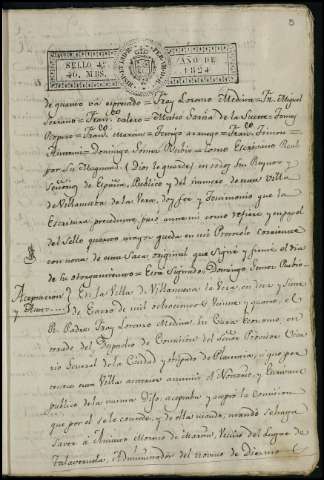 5
SELLO 4º
40. MRS.
AÑO DE
1824
de quanto va expresado = Fray Lorenzo Medina = Fr. Miguel
Serrano = Franco. Valero = Mateo Garcia de la Fuente = Tomas
= Franco. = Franco.
= Domingo Gomez Rubio = Como Escribano Real
por Su Magestad (Dios le guarde) en todos sus Reynos y
Señorios de España, Publico y del numero de esta Villa
de Villanueva de la Vera, doy fee y testimonio que la
Escritura precedente, pasó ante mi como refiere y en papel
del Sello quarto mayor queda en mi Protocolo corriente
con nota de esta Saca original que signé y firmé el dia
de su otorgamiento = Esta Signado = Domingo Gomez Rubio =
Aceptacion
y Auto
En la Villa de Villanueva la Vera, en diez y siete
de Enero de mil ochocientos Veinte y quatro, el
R. Padre Fray Lorenzo Medina, su Cura Ecónomo, en-
terado del Despacho de Comision del Señor Provisor Vica-
rio General de la Ciudad y obispado de Plasencia, y que por
esta Villa ante mi el Notario y Escrivano
publico de la misma Dijo: aceptaba y acepto la Comision
que por él se le concede, y de ella usando, mando se haga
saver á Moreno de Vecino del Lugar de
Talaveruela, Administrador del Noveno de Diezmos